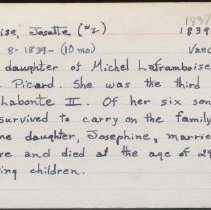 ise, Josette (#2)
1839
1839
8-1839- (10 mo)
Vanc
daughter of Michel Laframboise
Picard. She was the third
Labonte II. Of her six son
survived to carry on the family
ne daughter, Josephine, marrie
re and died at the age of 29
ing children.